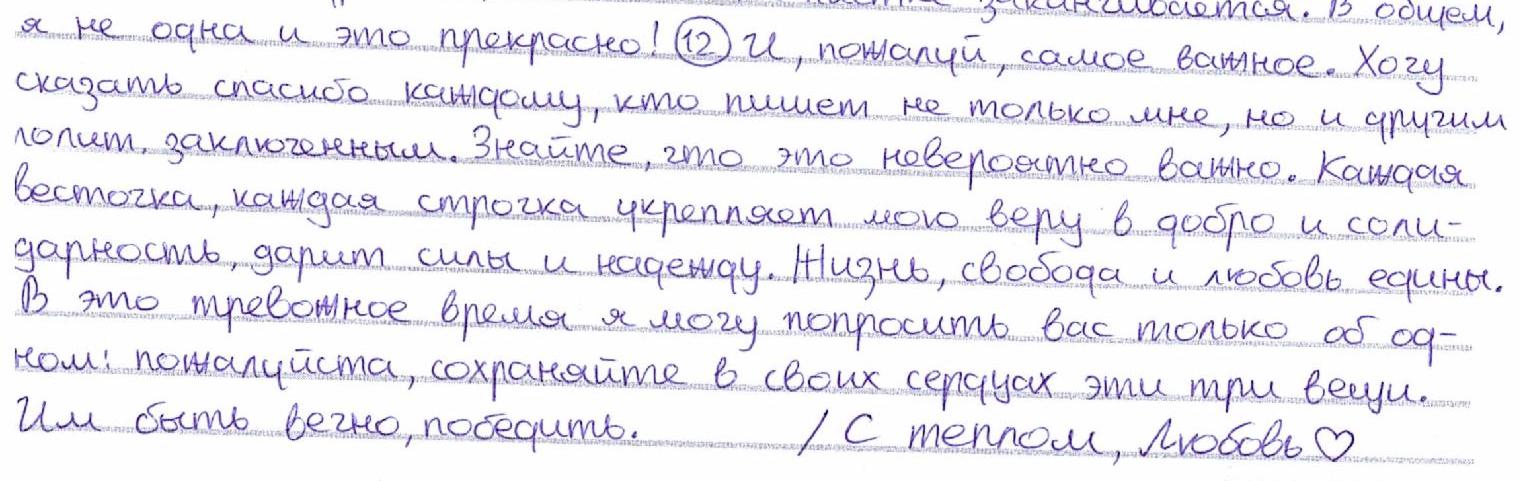 заканчивается. В общем,
я не одна и это прекрасно! (12) И, пожалуй, самое важное. Хочу
сказать спасибо каждому, кто пишет не только мне, но и другим
полит. заключенным. Знайте, что это невероятно важно. Каждая
весточка, каждая строчка укрепляет мою веру в добро и соли-
дарность, дарит силы и надежду. Жизнь, свобода и любовь едины.
В это тревожное время я могу попросить вас только об од-
ном: пожалуйста, сохраняйте в своих сердцах эти три вещи.
Им быть вечно, победить. / С теплом, Любовь ♡